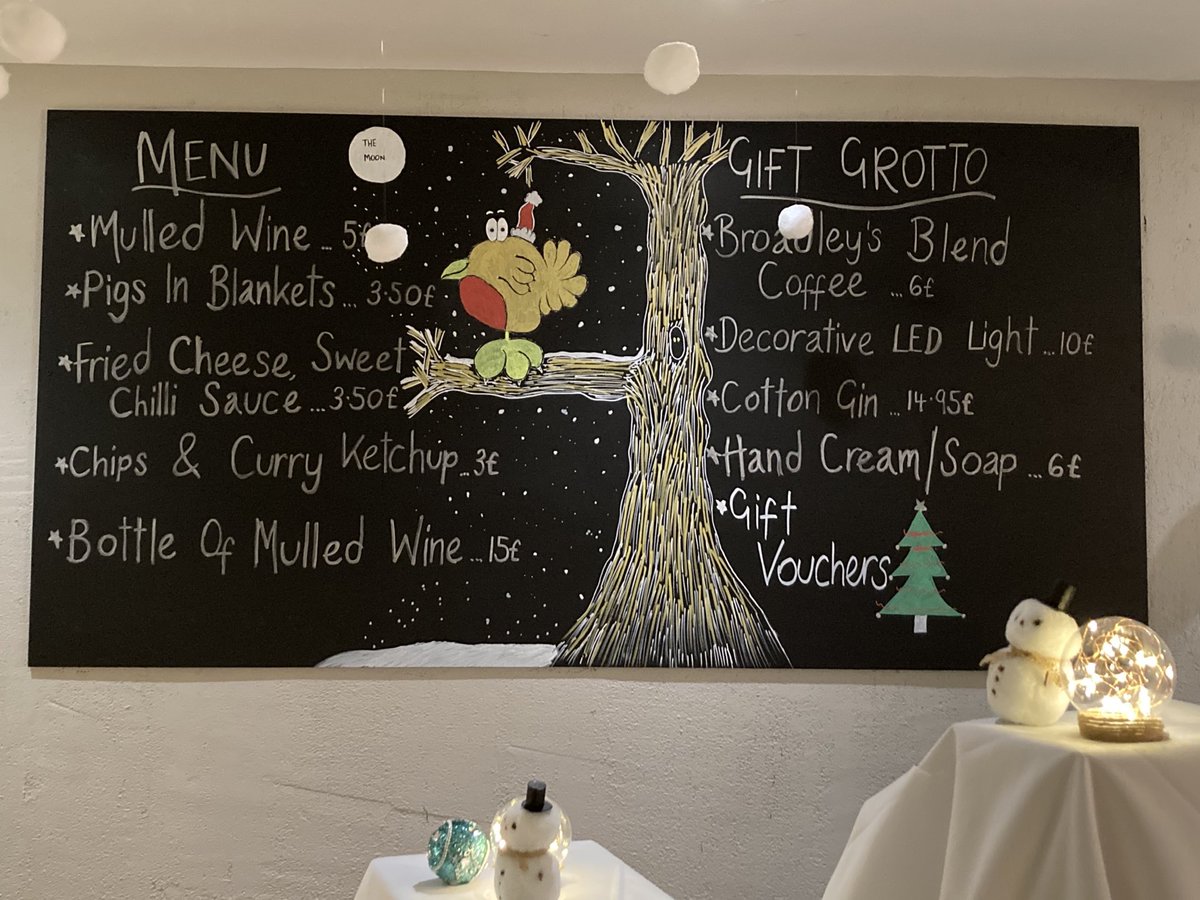 MENU
*Mulled Wine ... 5£
*Pigs In Blankets ... 3.50£
*Fried Cheese, Sweet
Chilli Sauce ... 3.50£
*Chips & Curry Ketchup ... 3£
*Bottle Of Mulled Wine ... 15£
THE
MOON
GIFT GROTTO
*Broadley's Blend
Coffee ... 6£
*Decorative LED Light ... 10£
*Cotton Gin ... 14.95£
*Hand Cream/Soap ... 6£
*Gift
Vouchers